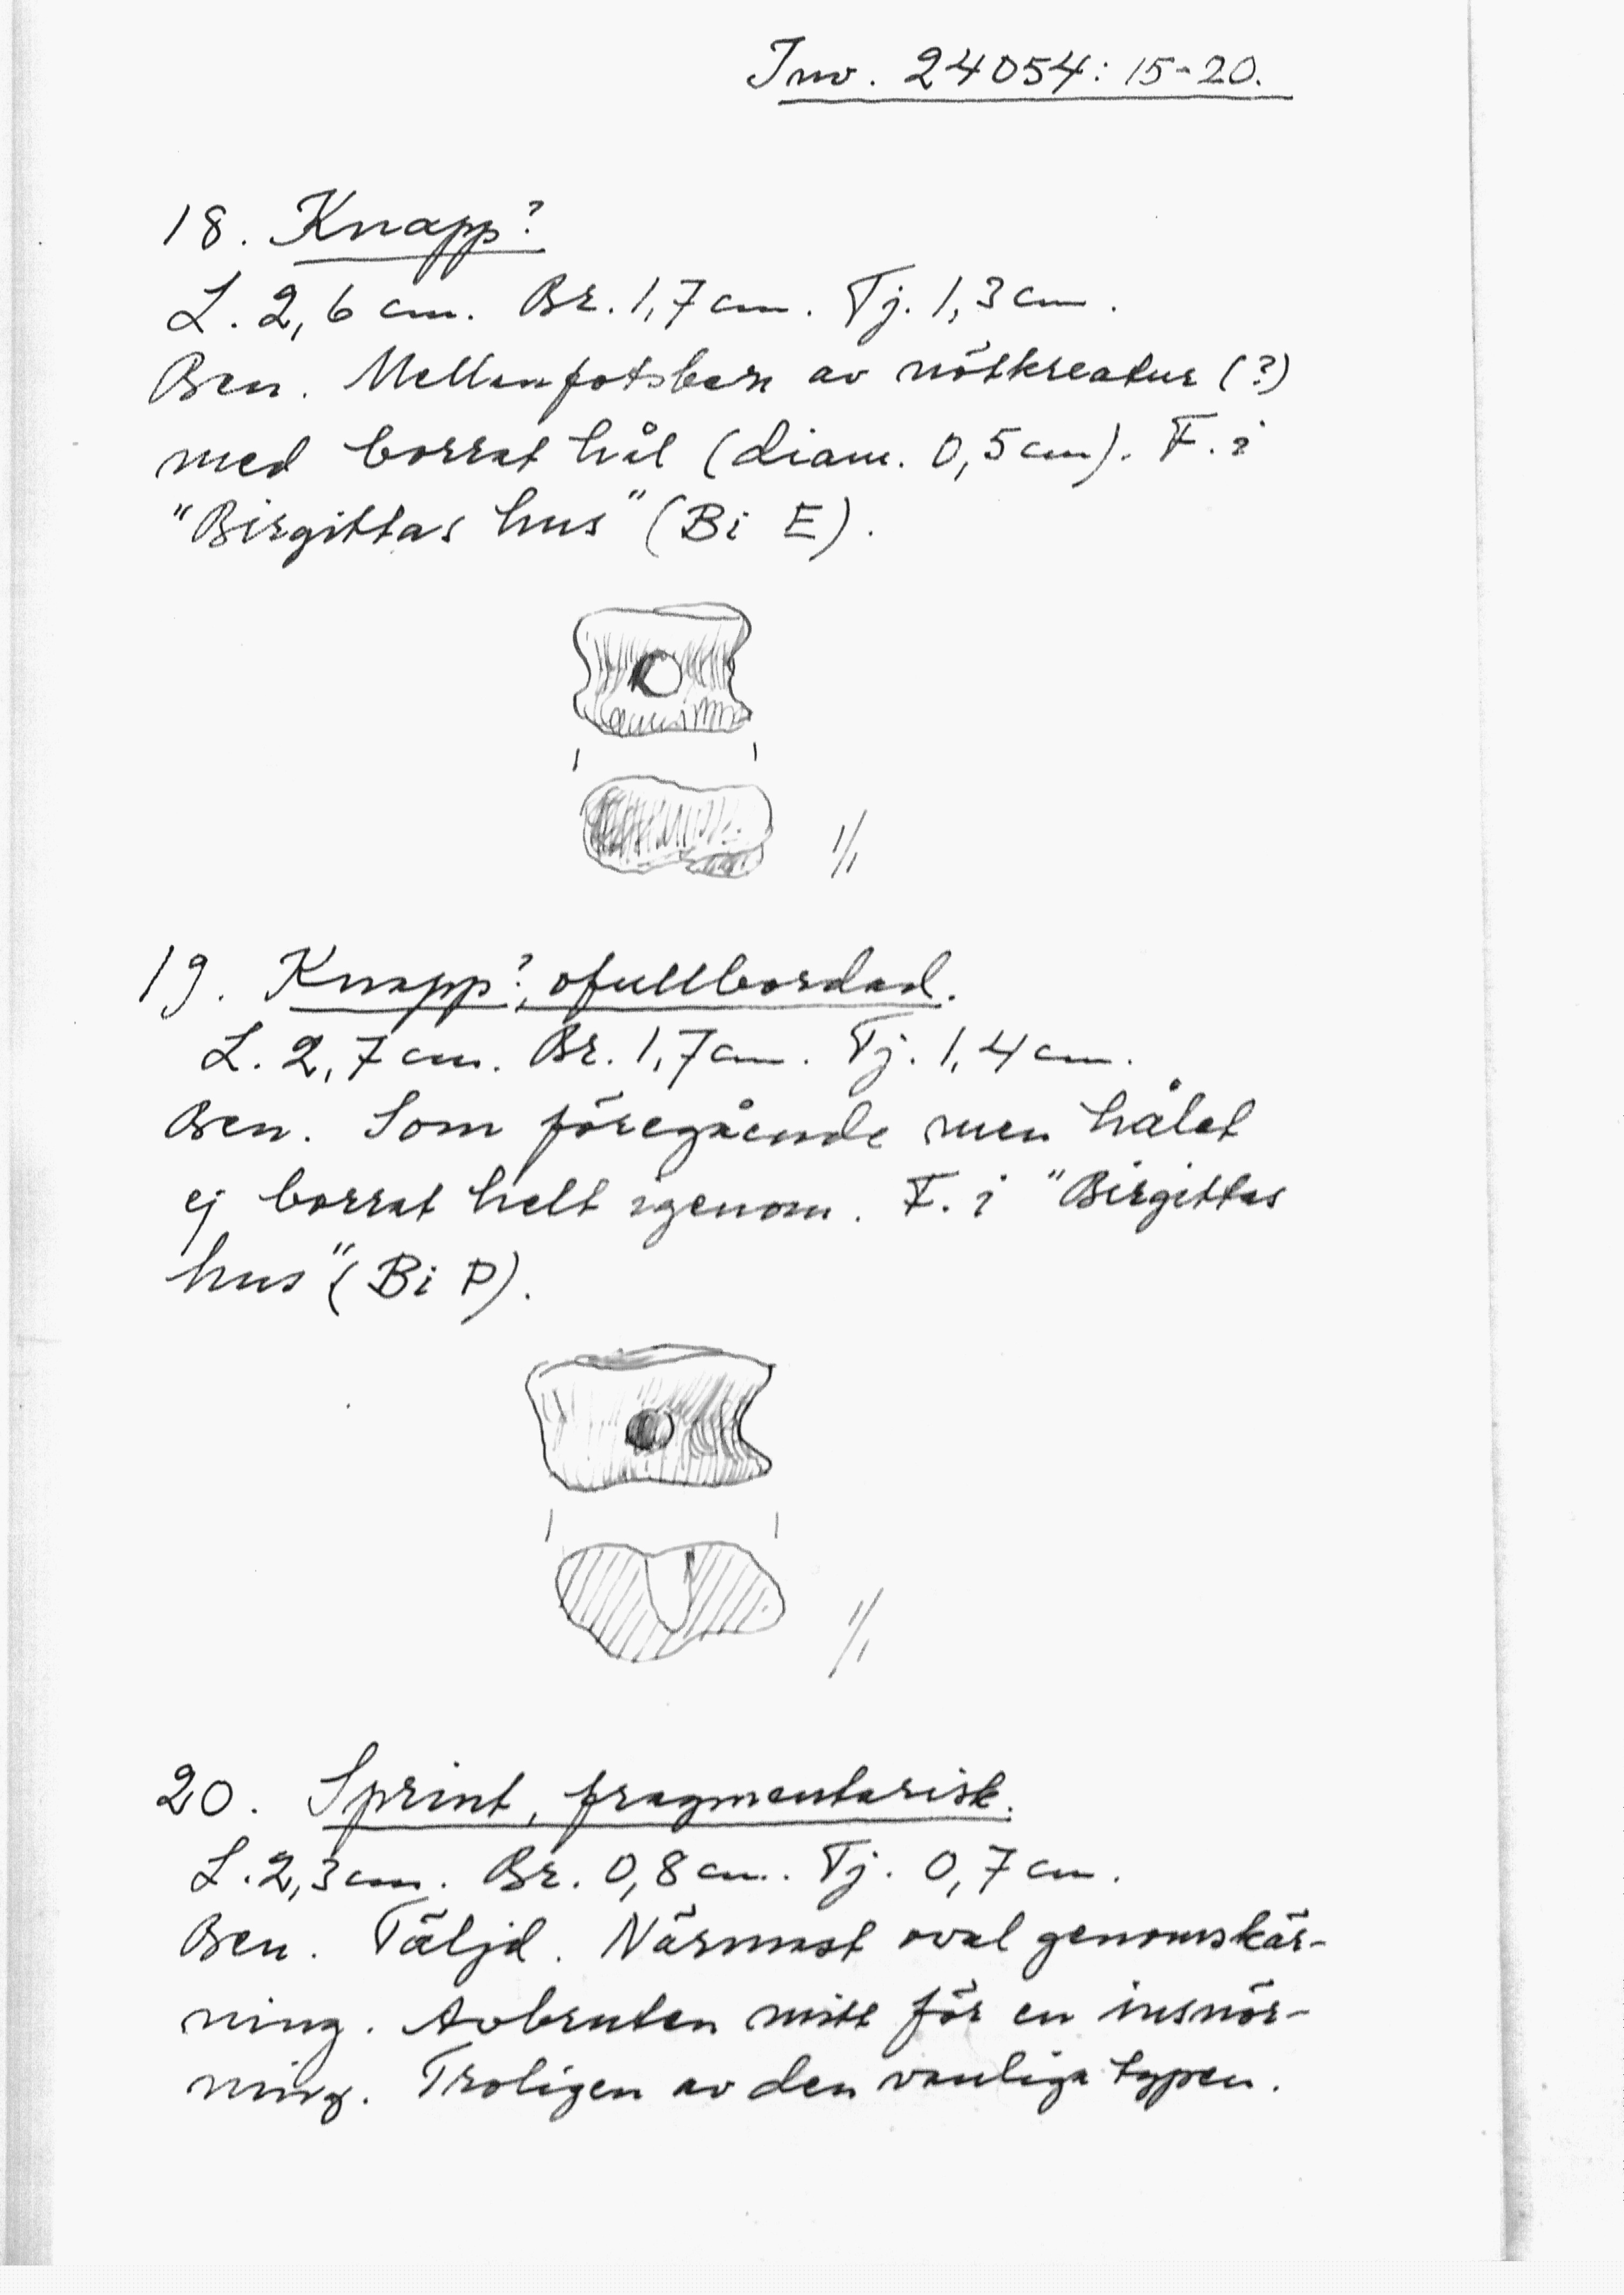 Inv. 24054: 15-20.
18. Knapp?
L. 2,6 cm. Br. 1,7 cm. Tj. 1,3 cm.
Ben. Mellanfotsben av nötkreatur (?)
med borrat hål (diam. 0,5 cm). F. i
"Birgittas hus" (Bi E).
1/1
19. Knapp?, ofullbordad.
L. 2,7 cm. Br. 1,7 cm. Tj. 1,4 cm.
Ben. Som föregående men hålet
ej borrat helt igenom. F. i "Birgittas
hus" (Bi P).
1/1
20. Sprint, fragmentarisk.
L. 2,3 cm. Br. 0,8 cm. Tj. 0,7 cm.
Ben. Täljd. Närmast oval genomskär-
ning. Avbruten mitt för en insnör-
ning. Troligen av den vanliga typen.